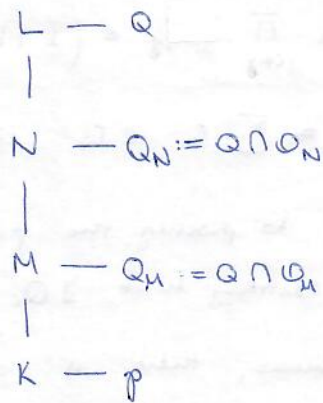 L — Q
N — Q_N := Q ∩ O_N
M — Q_M := Q ∩ O_M
K — p